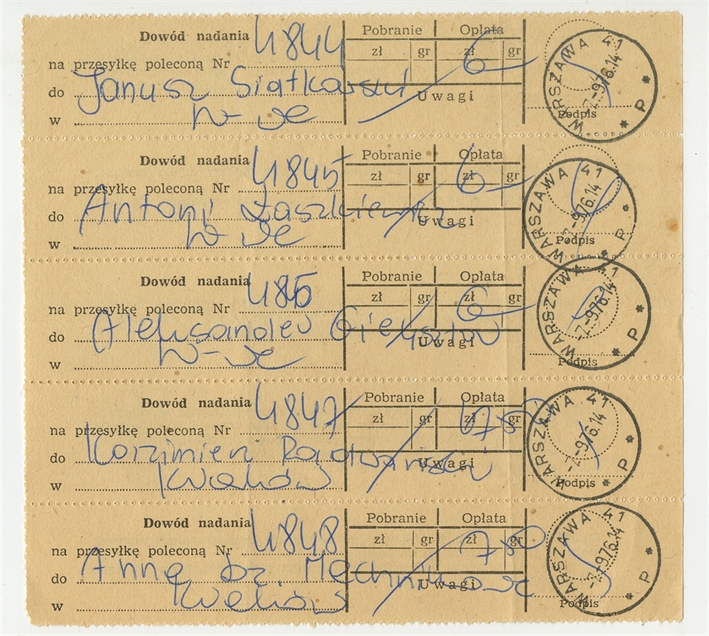 Dowód nadania 4844 Pobranie Opłata
na przesyłkę poleconą Nr zł gr zł gr 6
do Janusz Siatkowski Uwagi
w W-wie Podpis
WARSZAWA 41 -7.-9.76.14 * P *
Dowód nadania 4845 Pobranie Opłata
na przesyłkę poleconą Nr zł gr zł gr 6
do Antoni Uwagi
w W-wie Podpis
WARSZAWA 41 -7.-9.76.14 * P *
Dowód nadania Pobranie Opłata
na przesyłkę poleconą Nr zł gr zł gr 6
do Aleksander Gieysztor Uwagi
w W-wie Podpis
WARSZAWA 41 -7.-9.76.14 * P *
Dowód nadania 4847 Pobranie Opłata
na przesyłkę poleconą Nr zł gr zł gr
do Kazimierz Radwański Uwagi
w Kraków Podpis
WARSZAWA 41 -7.-9.76.14 * P *
Dowód nadania 4848 Pobranie Opłata
na przesyłkę poleconą Nr zł gr zł gr 750
do Anna Uwagi
w Kraków Podpis
WARSZAWA 41 -7.-9.76.14 * P *